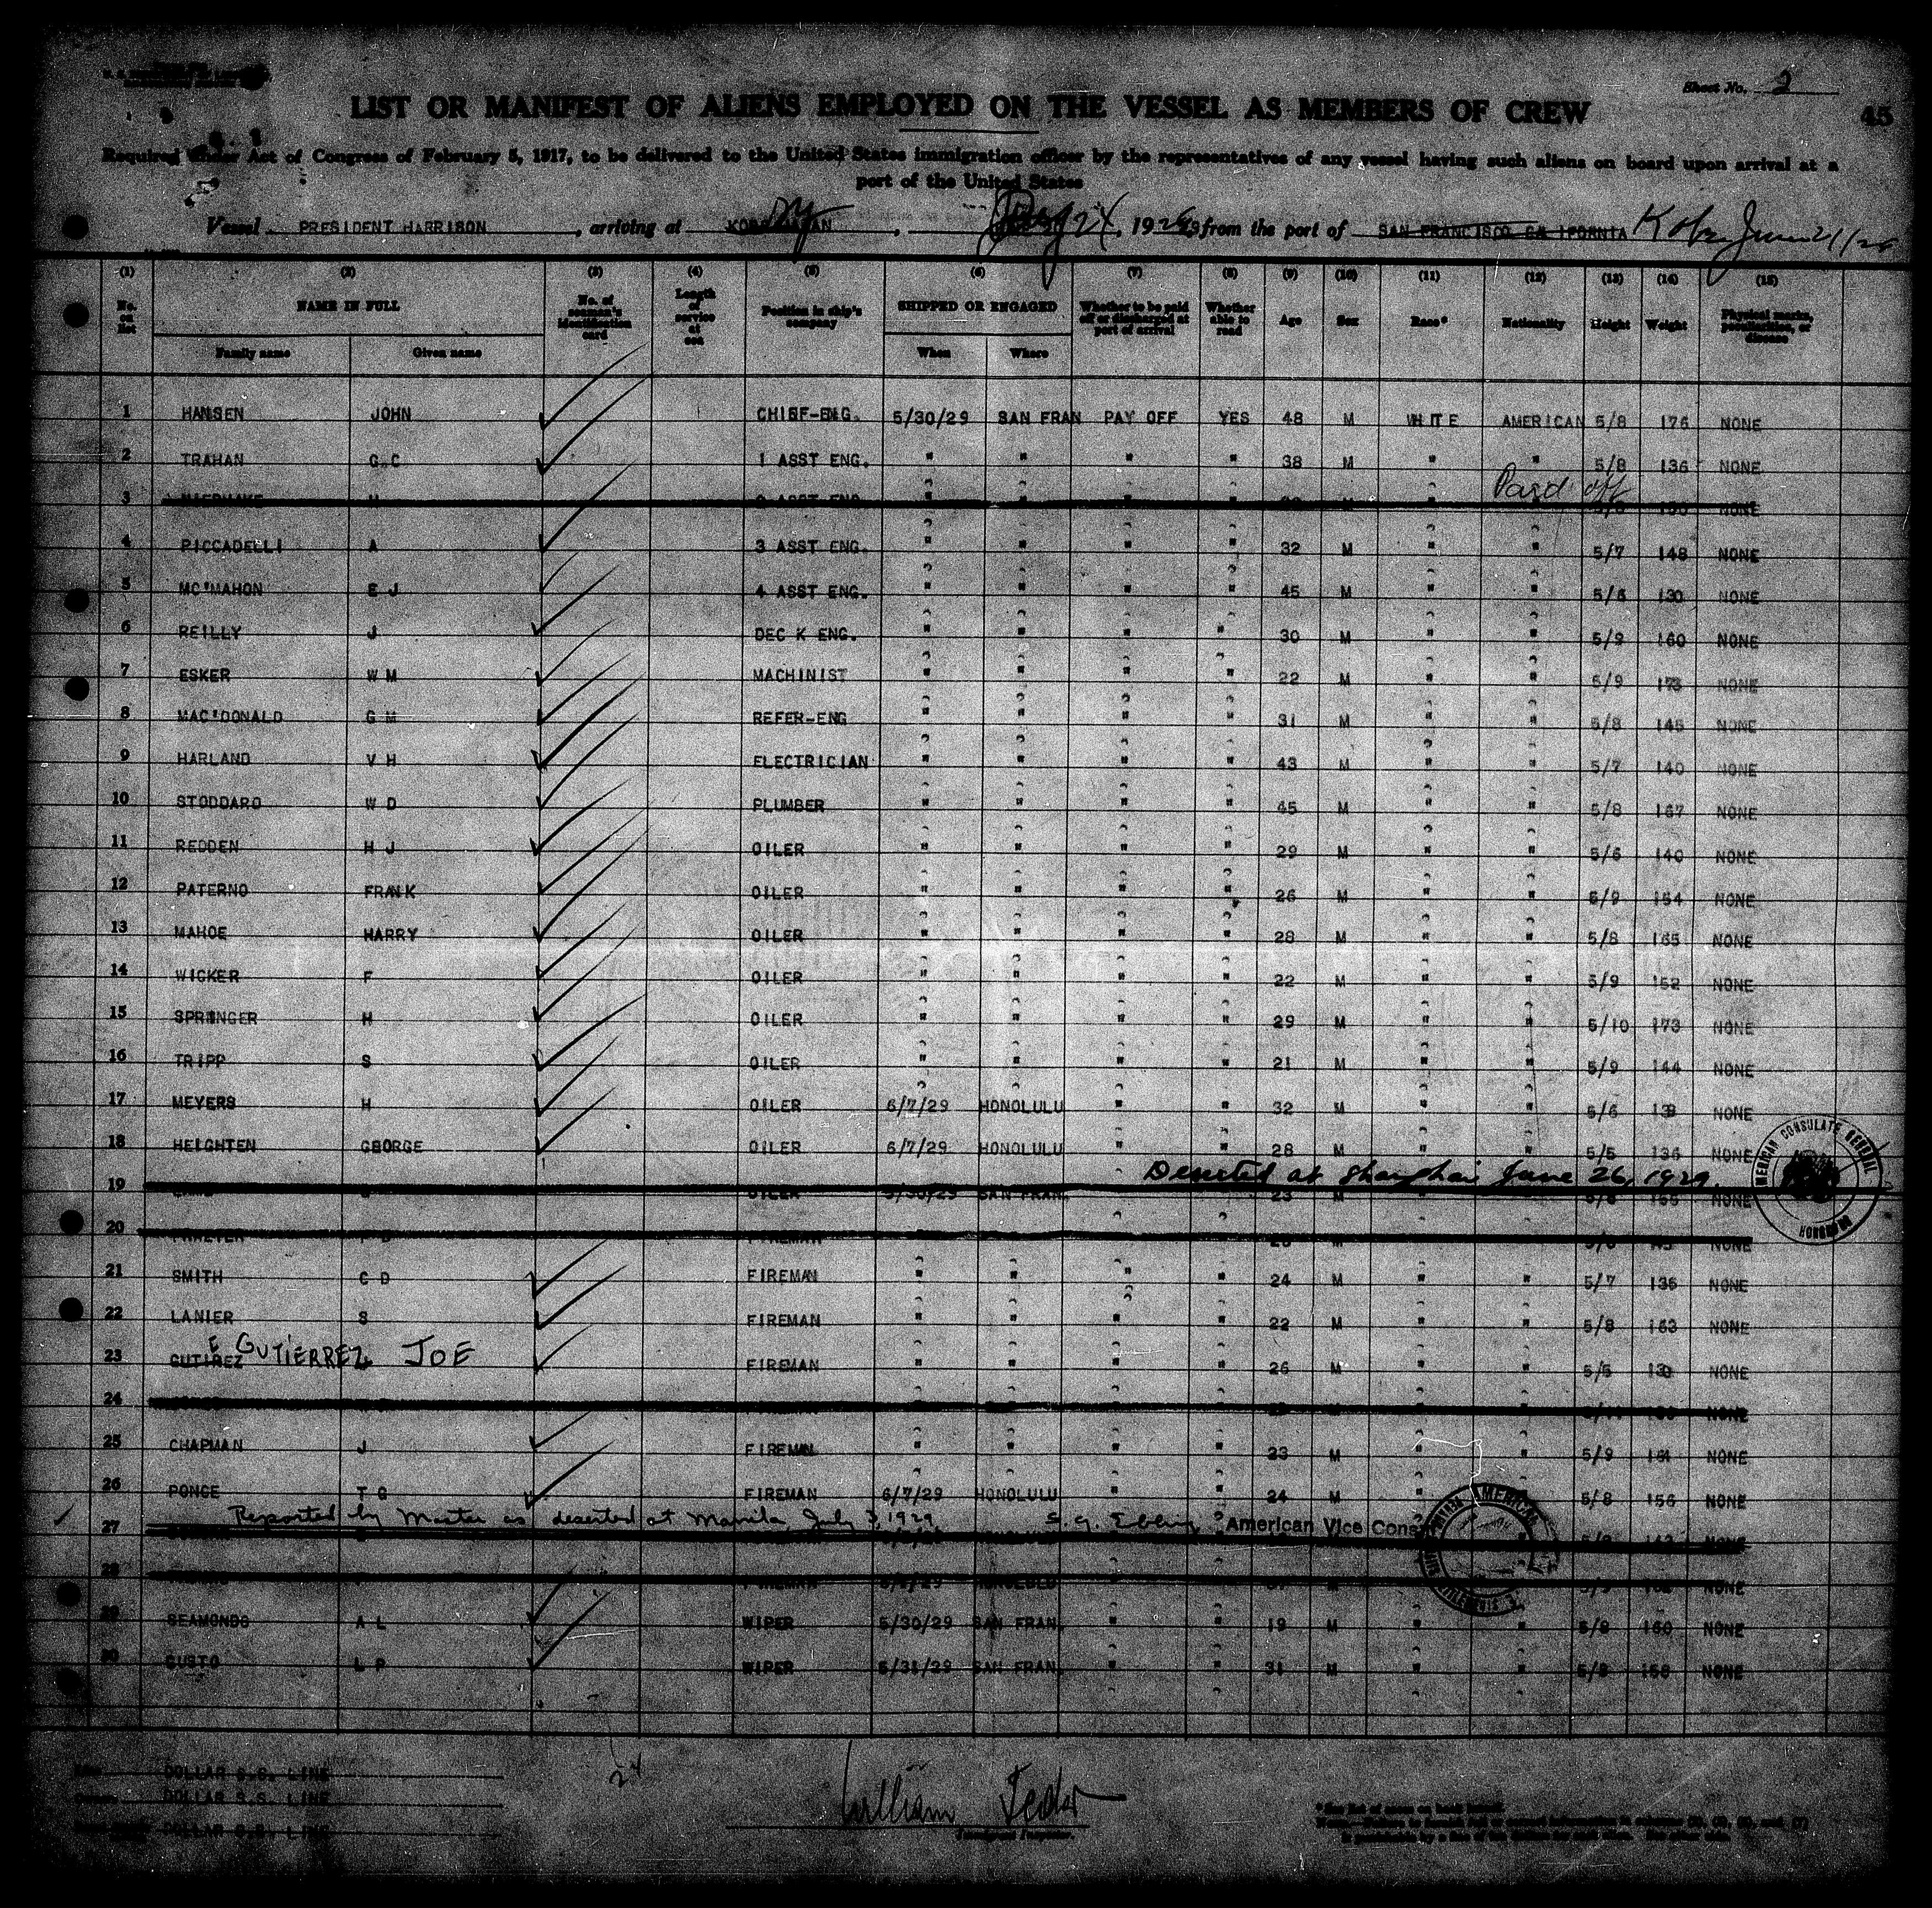 Sheet No. 2
LIST OR MANIFEST OF ALIENS EMPLOYED ON THE VESSEL AS MEMBERS OF CREW
45
Required under Act of Congress of February 5, 1917, to be delivered to the United States immigration officer by the representatives of any vessel having such aliens on board upon arrival at a
port of the United States
Vessel PRESIDENT HARRISON, arriving at NY, 24, 192 from the port of SAN FRANCISCO CALIFORNIA Kobe June 21/29
(1) (2) (3) (4) (5) (6) (7) (8) (9) (10) (11) (12) (13) (14) (15)
No. on list NAME IN FULL Family name Given name No. of seaman's identification card Length of service at sea Position in ship's company SHIPPED OR ENGAGED When Where Whether to be paid off or discharged at port of arrival Whether able to read Age Sex Race* Nationality Height Weight Physical marks, peculiarities, or disease
1 HANSEN JOHN CHIEF-ENG. 5/30/29 SAN FRAN PAY OFF YES 48 M WHITE AMERICAN 5/8 176 NONE
2 TRAHAN G.C 1 ASST ENG. " " " " 38 M " " 5/8 136 NONE
Paid off
3 2 ASST ENG NONE
4 PICCADELLI A 3 ASST ENG. " " " " 32 M " " 5/7 148 NONE
5 MC'MAHON E J 4 ASST ENG. " " " " 45 M " " 5/6 130 NONE
6 REILLY J DEC K ENG. " " " " 30 M " " 5/9 160 NONE
7 ESKER W M MACHINIST " " " " 22 M " " 5/9 173 NONE
8 MAC'DONALD G M REFER-ENG " " " " 31 M " " 5/8 145 NONE
9 HARLAND V H ELECTRICIAN " " " " 43 M " " 5/7 140 NONE
10 STODDARD W D PLUMBER " " " " 45 M " " 5/8 167 NONE
11 REDDEN H J OILER " " " " 29 M " " 5/6 140 NONE
12 PATERNO FRANK OILER " " " " 26 M " " 5/9 154 NONE
13 MAHOE HARRY OILER " " " " 28 M " " 5/8 165 NONE
14 WICKER F OILER " " " " 22 M " " 5/9 152 NONE
15 SPRINGER H OILER " " " " 29 M " " 5/10 173 NONE
16 TRIPP S OILER " " " " 21 M " " 5/9 144 NONE
17 MEYERS H OILER 6/7/29 HONOLULU " " 32 M " " 5/6 139 NONE
18 HEIGHTEN GEORGE OILER 6/7/29 HONOLULU " " 28 M " " 5/5 136 NONE
Deserted at Shanghai June 26, 1929.
AMERICAN CONSULATE GENERAL HONGKONG
19 OILER 5/30/29 SAN FRAN. 23 M 5/8 165 NONE
20 FIREMAN M NONE
21 SMITH C D FIREMAN " " " " 24 M " " 5/7 135 NONE
22 LANIER S FIREMAN " " " " 22 M " " 5/8 163 NONE
23 GUTIREZ E GUTIERREZ JOE FIREMAN " " " " 26 M " " 5/5 130 NONE
24 NONE
25 CHAPMAN J FIREMAN " " " " 23 M " " 5/9 161 NONE
26 PONCE T G FIREMAN 6/7/29 HONOLULU " " 24 M " " 5/8 156 NONE
Reported by Master as deserted at Manila July 3, 1929 American Vice Cons
27 NONE
28 FIREMAN HONOLULU NONE
29 SEAMONDS A L WIPER 5/30/29 SAN FRAN. " " 19 M " " 5/8 160 NONE
30 GUSTO L P WIPER 5/31/29 SAN FRAN. " " 31 M " " 5/8 158 NONE
24
DOLLAR S.S. LINE
DOLLAR S.S. LINE
DOLLAR S.S. LINE
William
Immigrant Inspector.